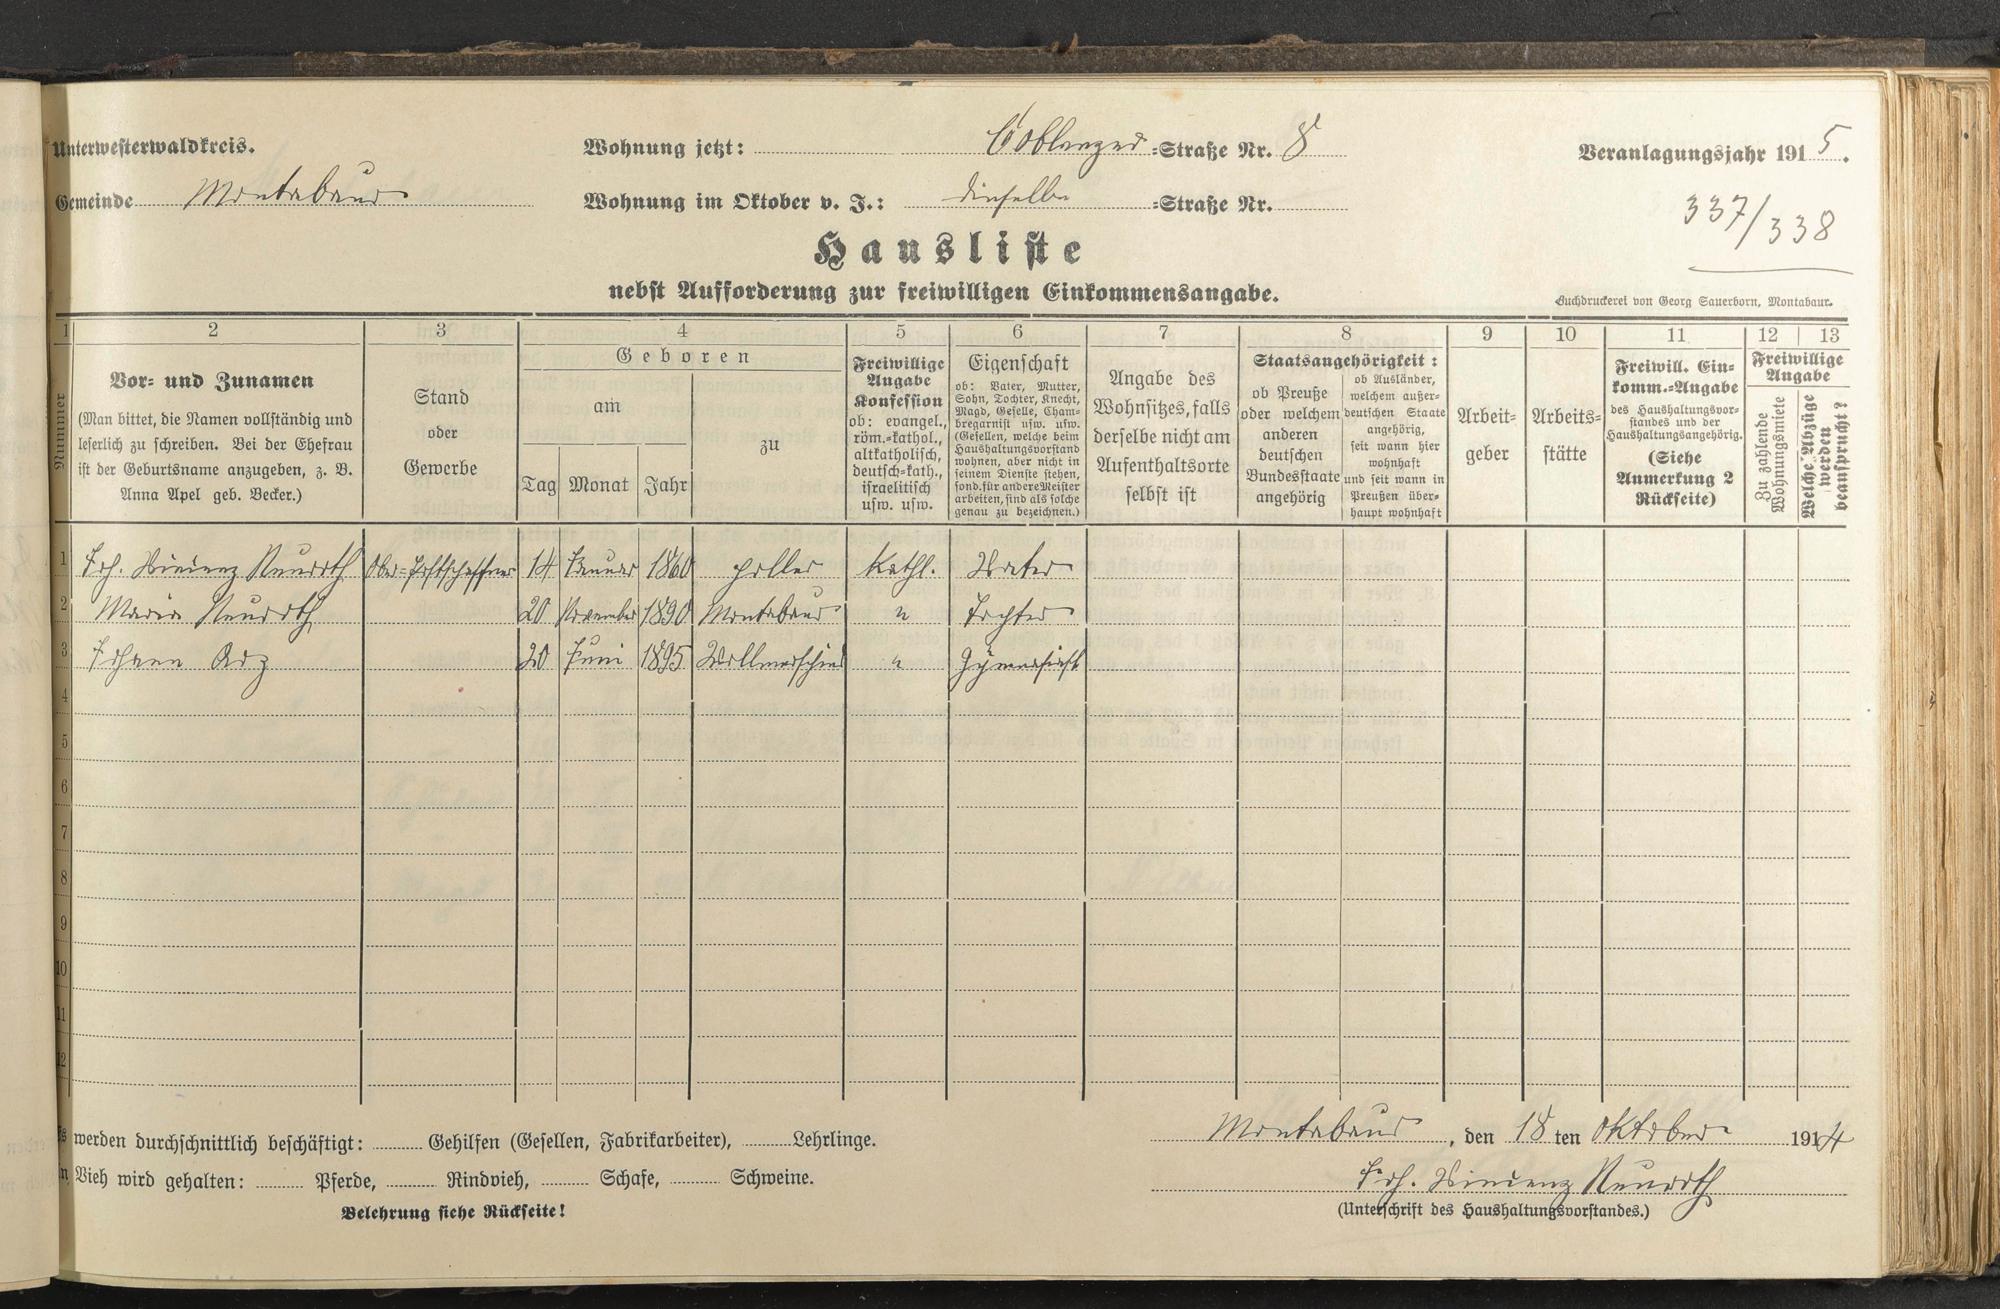 Unterwesterwaldkreis.
Wohnung jetzt: Coblenzer =Straße Nr. 8
Veranlagungsjahr 1915.
Gemeinde Montabaur
Wohnung im Oktober v. J.: dieselbe =Straße Nr.
337/338
Hausliste
nebst Aufforderung zur freiwilligen Einkommensangabe.
Buchdruckerei von Georg Sauerborn, Montabaur.
1 2 3 4 5 6 7 8 9 10 11 12 13
Nummer
Vor- und Zunamen
(Man bittet, die Namen vollständig und
leserlich zu schreiben. Bei der Ehefrau
ist der Geburtsname anzugeben, z. B.
Anna Apel geb. Becker.)
Stand
oder
Gewerbe
Geboren
am
Tag Monat Jahr
zu
Freiwillige
Angabe
Konfession
ob: evangel.,
röm.=kathol.,
altkatholisch,
deutsch=kath.,
israelitisch
usw. usw.
Eigenschaft
ob: Vater, Mutter,
Sohn, Tochter, Knecht,
Magd, Geselle, Cham-
bregarnist usw. usw.
(Gesellen, welche beim
Haushaltungsvorstand
wohnen, aber nicht in
seinem Dienste stehen,
sond. für andere Meister
arbeiten, sind als solche
genau zu bezeichnen.)
Angabe des
Wohnsitzes, falls
derselbe nicht am
Aufenthaltsorte
selbst ist
Staatsangehörigkeit:
ob Preuße
oder welchem
anderen
deutschen
Bundesstaate
angehörig
ob Ausländer,
welchem außer-
deutschen Staate
angehörig,
seit wann hier
wohnhaft
und seit wann in
Preußen über-
haupt wohnhaft
Arbeit-
geber
Arbeits-
stätte
Freiwill. Ein-
komm.=Angabe
des Haushaltungsvor-
standes und der
Haushaltungsangehörig.
(Siehe
Anmerkung 2
Rückseite)
Freiwillige
Angabe
Zu zahlende
Wohnungsmiete
Welche Abzüge
werden
beansprucht?
1 Joh. Vincenz Neuroth Ober=Postschaffner 14 Januar 1860 Holler Kathl. Vater
2 Maria Neuroth 20 November 1890 Montabaur " Tochter
3 Johann 20 Juni 1895 " Gymnasiast
4
5
6
7
8
9
10
11
12
werden durchschnittlich beschäftigt: Gehilfen (Gesellen, Fabrikarbeiter), Lehrlinge.
Montabaur, den 18 ten Oktober 1914
Vieh wird gehalten: Pferde, Rindvieh, Schafe, Schweine.
Joh. Vincenz Neuroth
Belehrung siehe Rückseite!
(Unterschrift des Haushaltungsvorstandes.)